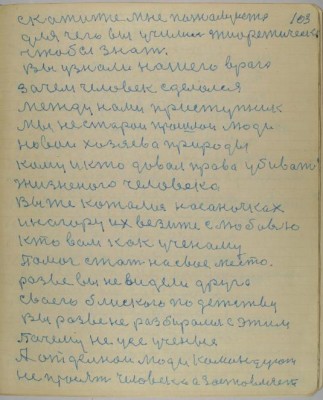 скажите мне пожалуиста 103
для чего вы училис теоретически
чтобы знат.
Вы узнали нашего врага
зачем человек сделался
между нами приступник
мы не старои прошлои люди
новои хозяева природы
кому и кто довал права убивать
жизненого человека
Вы же катали на саночках
и на гору их везите с любовью
кто вам как ученому
Памог стат на свое место.
разве вы не видели друга
своего близкого по детству
Вы разве не разбирались с этим
Почему не уже ученые
А отделнои люди командуют
не просят человека а заставляет